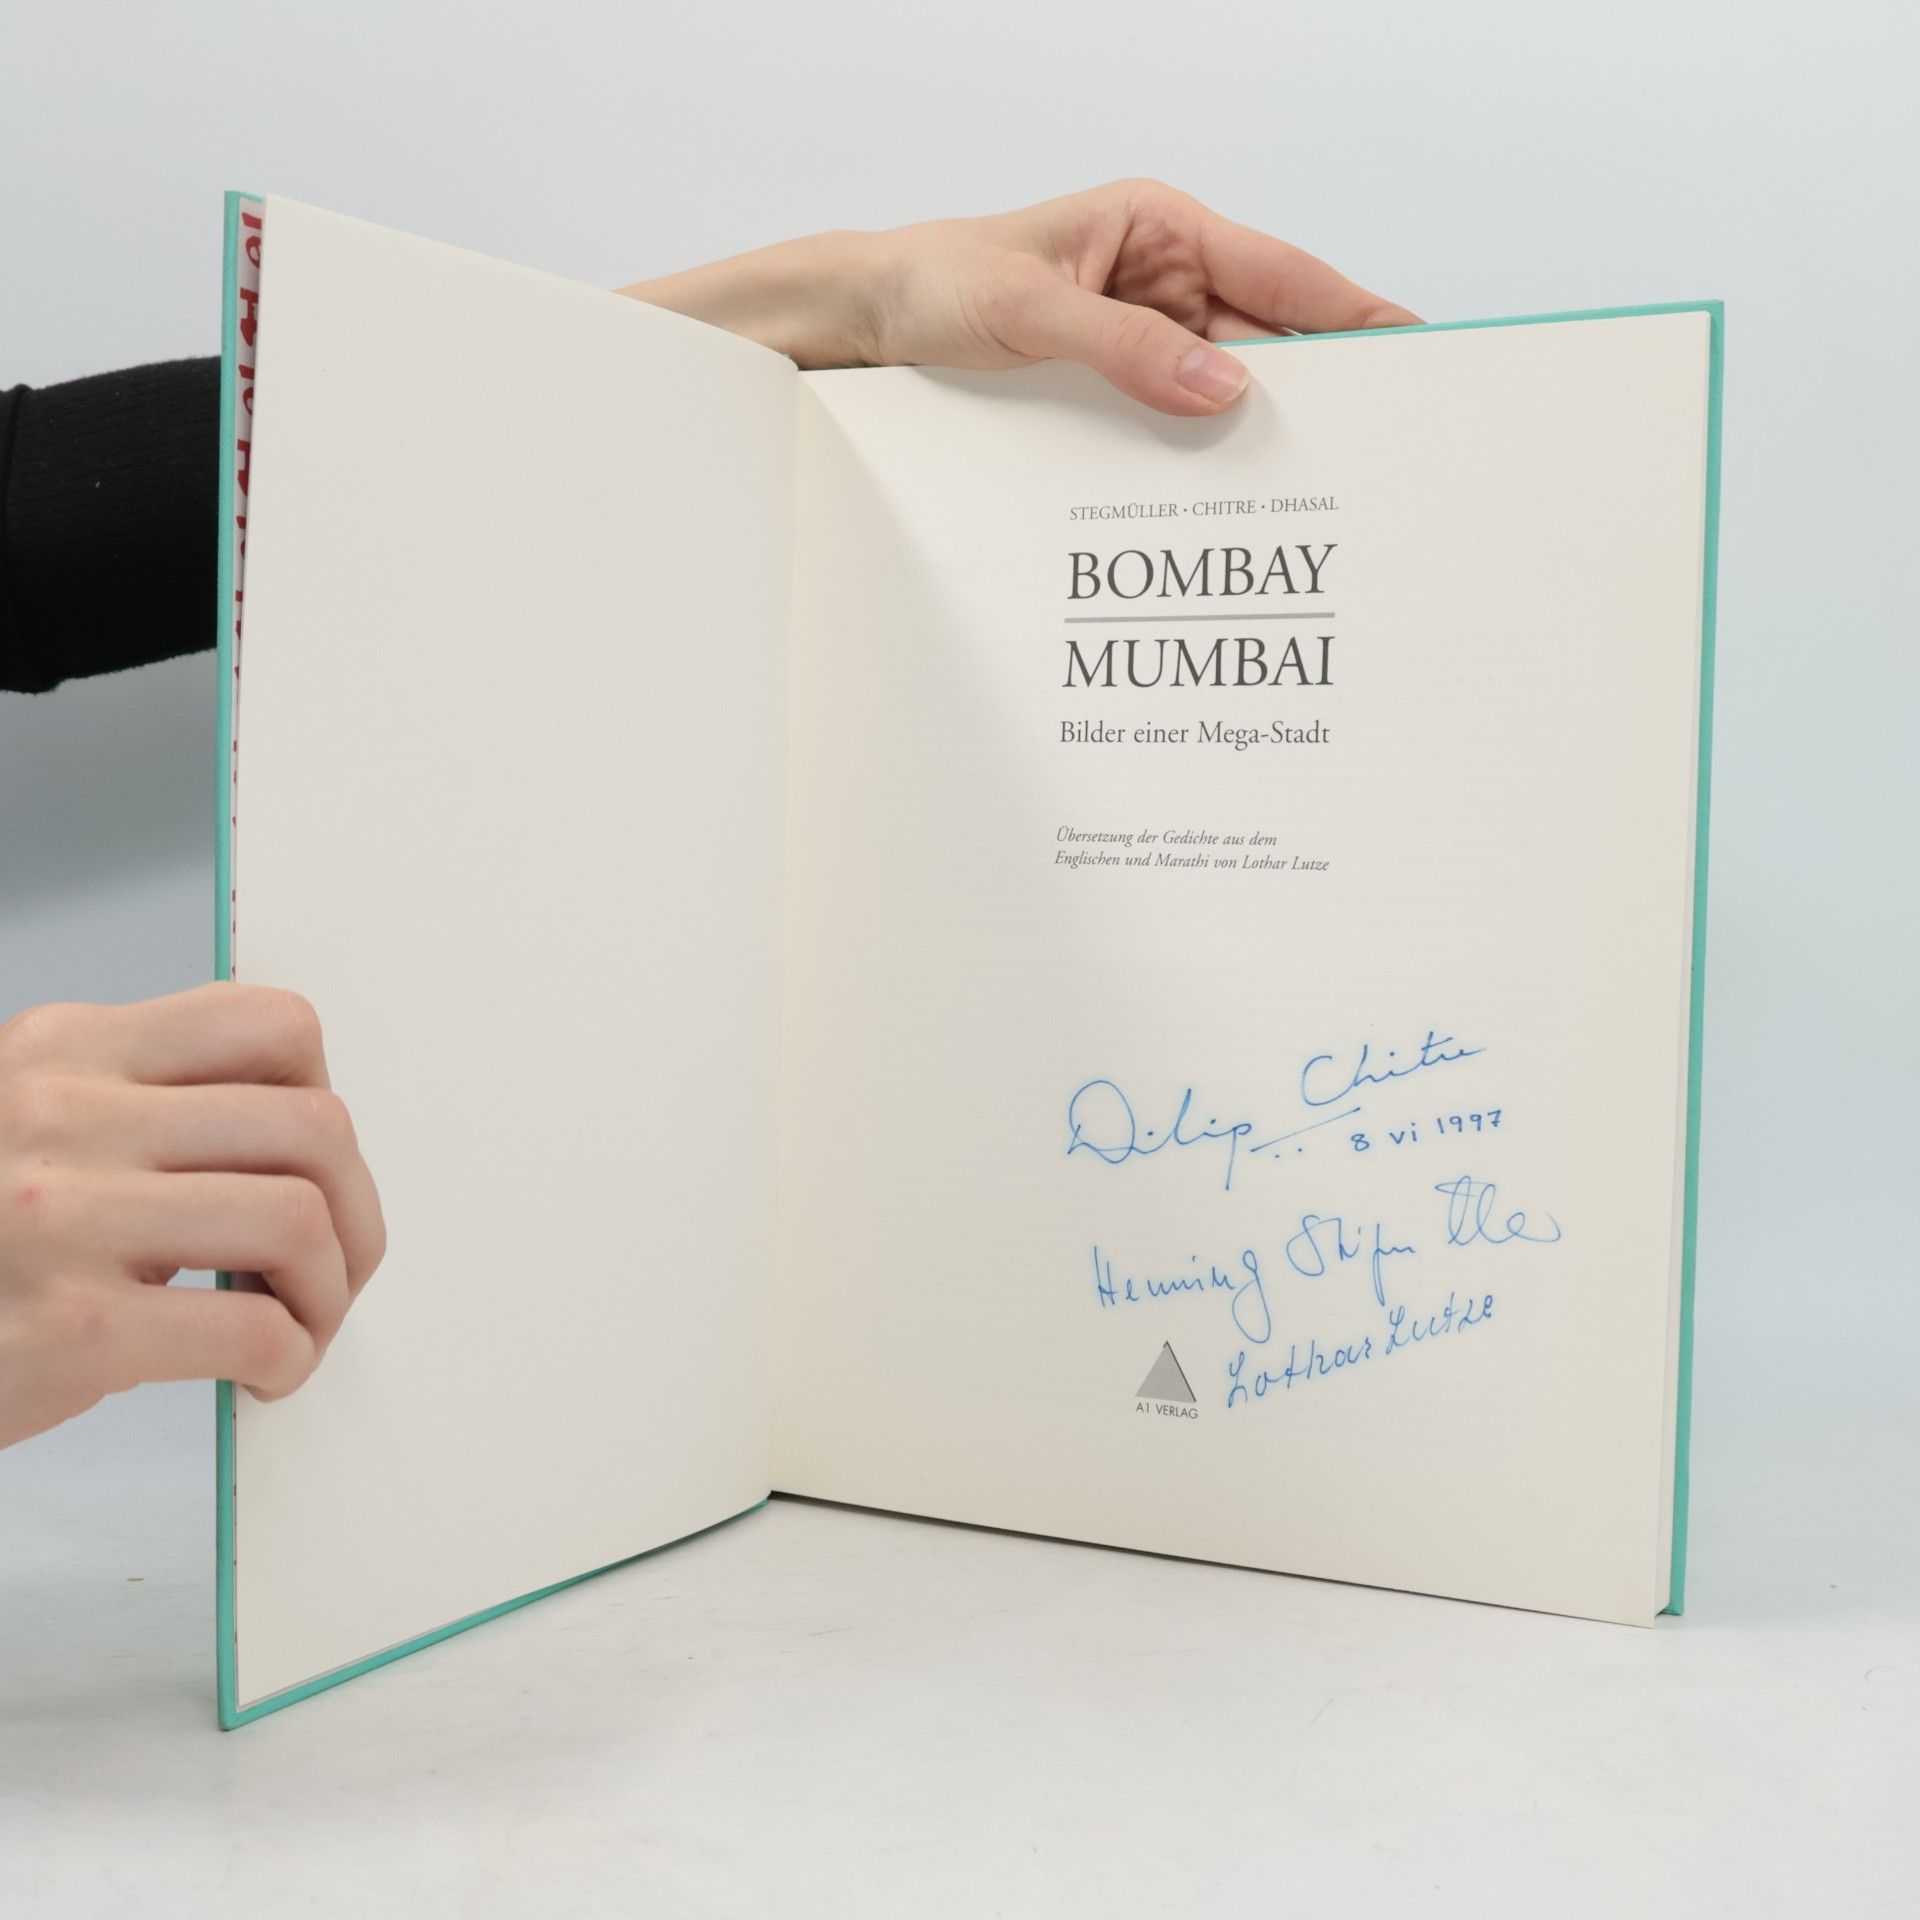 STEGMÜLLER • CHITRE • DHASAL
BOMBAY
MUMBAI
Bilder einer Mega-Stadt
Übersetzung der Gedichte aus dem
Englischen und Marathi von Lothar Lutze
Dilip Chitre
8 vi 1997
Henning
Lothar Lutze
A1 VERLAG